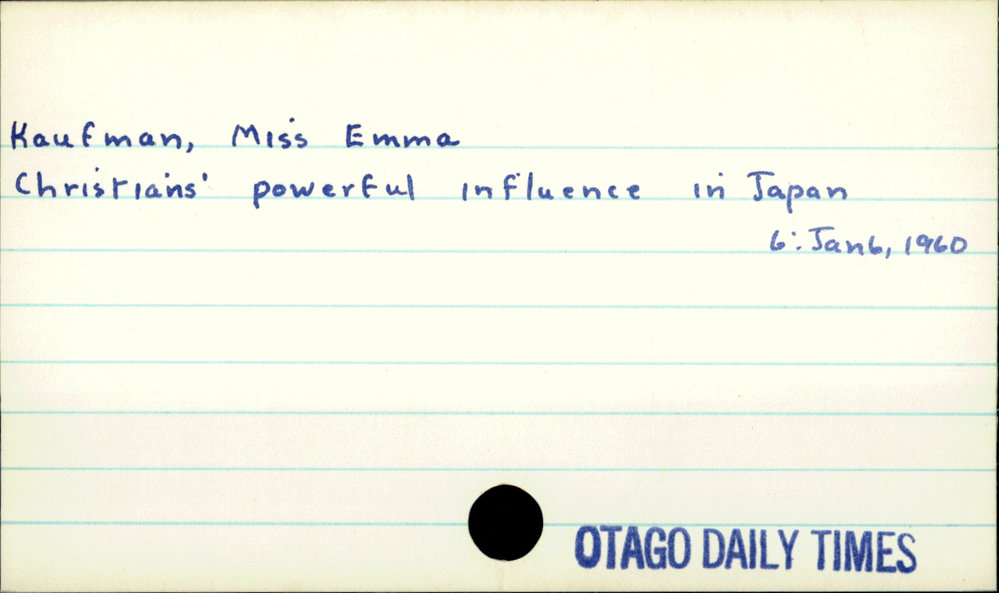 Kaufman, Miss Emma
Christians' powerful influence in Japan
6: Jan 6, 1960
OTAGO DAILY TIMES